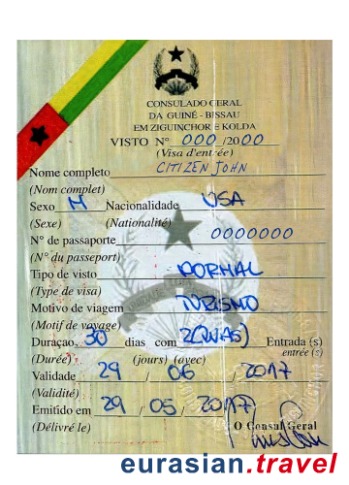 CONSULADO GERAL
DA GUINÉ - BISSAU
EM ZIGUINCHOR E KOLDA
VISTO Nº 000 /2000
(Visa d'entrée)
Nome completo CITIZEN JOHN
(Nom complet)
Sexo M Nacionalidade USA
(Sexe) (Nationalité)
Nº de passaporte 0000000
(Nº du passeport)
Tipo de visto NORMAL
(Type de visa)
Motivo de viagem TURISMO
(Motif de voyage)
Duraçao, 30 dias com 2(DUAS) Entrada (s)
(Durée) (jours) (avec) entrée (s)
Validade 29 / 06 / 2017
(Validité)
Emitido em 29 / 05 / 2017
(Délivré le) O Consul Geral
eurasian.travel